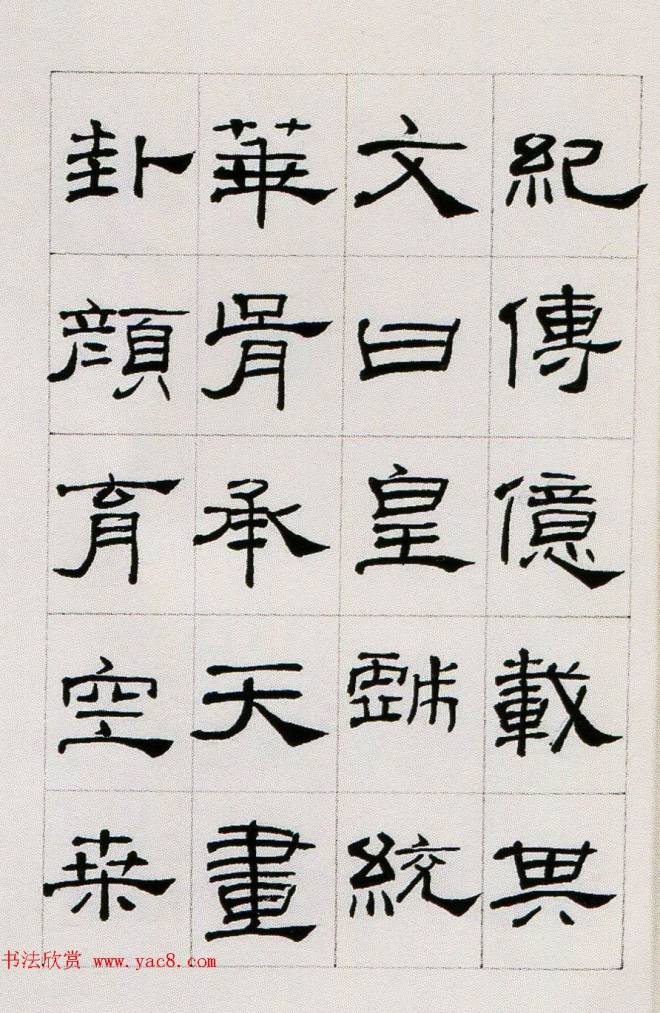 紀傳億載其
文曰皇戲統
華胥承天畫
卦顏育空桒
书法欣赏 www.yac8.com